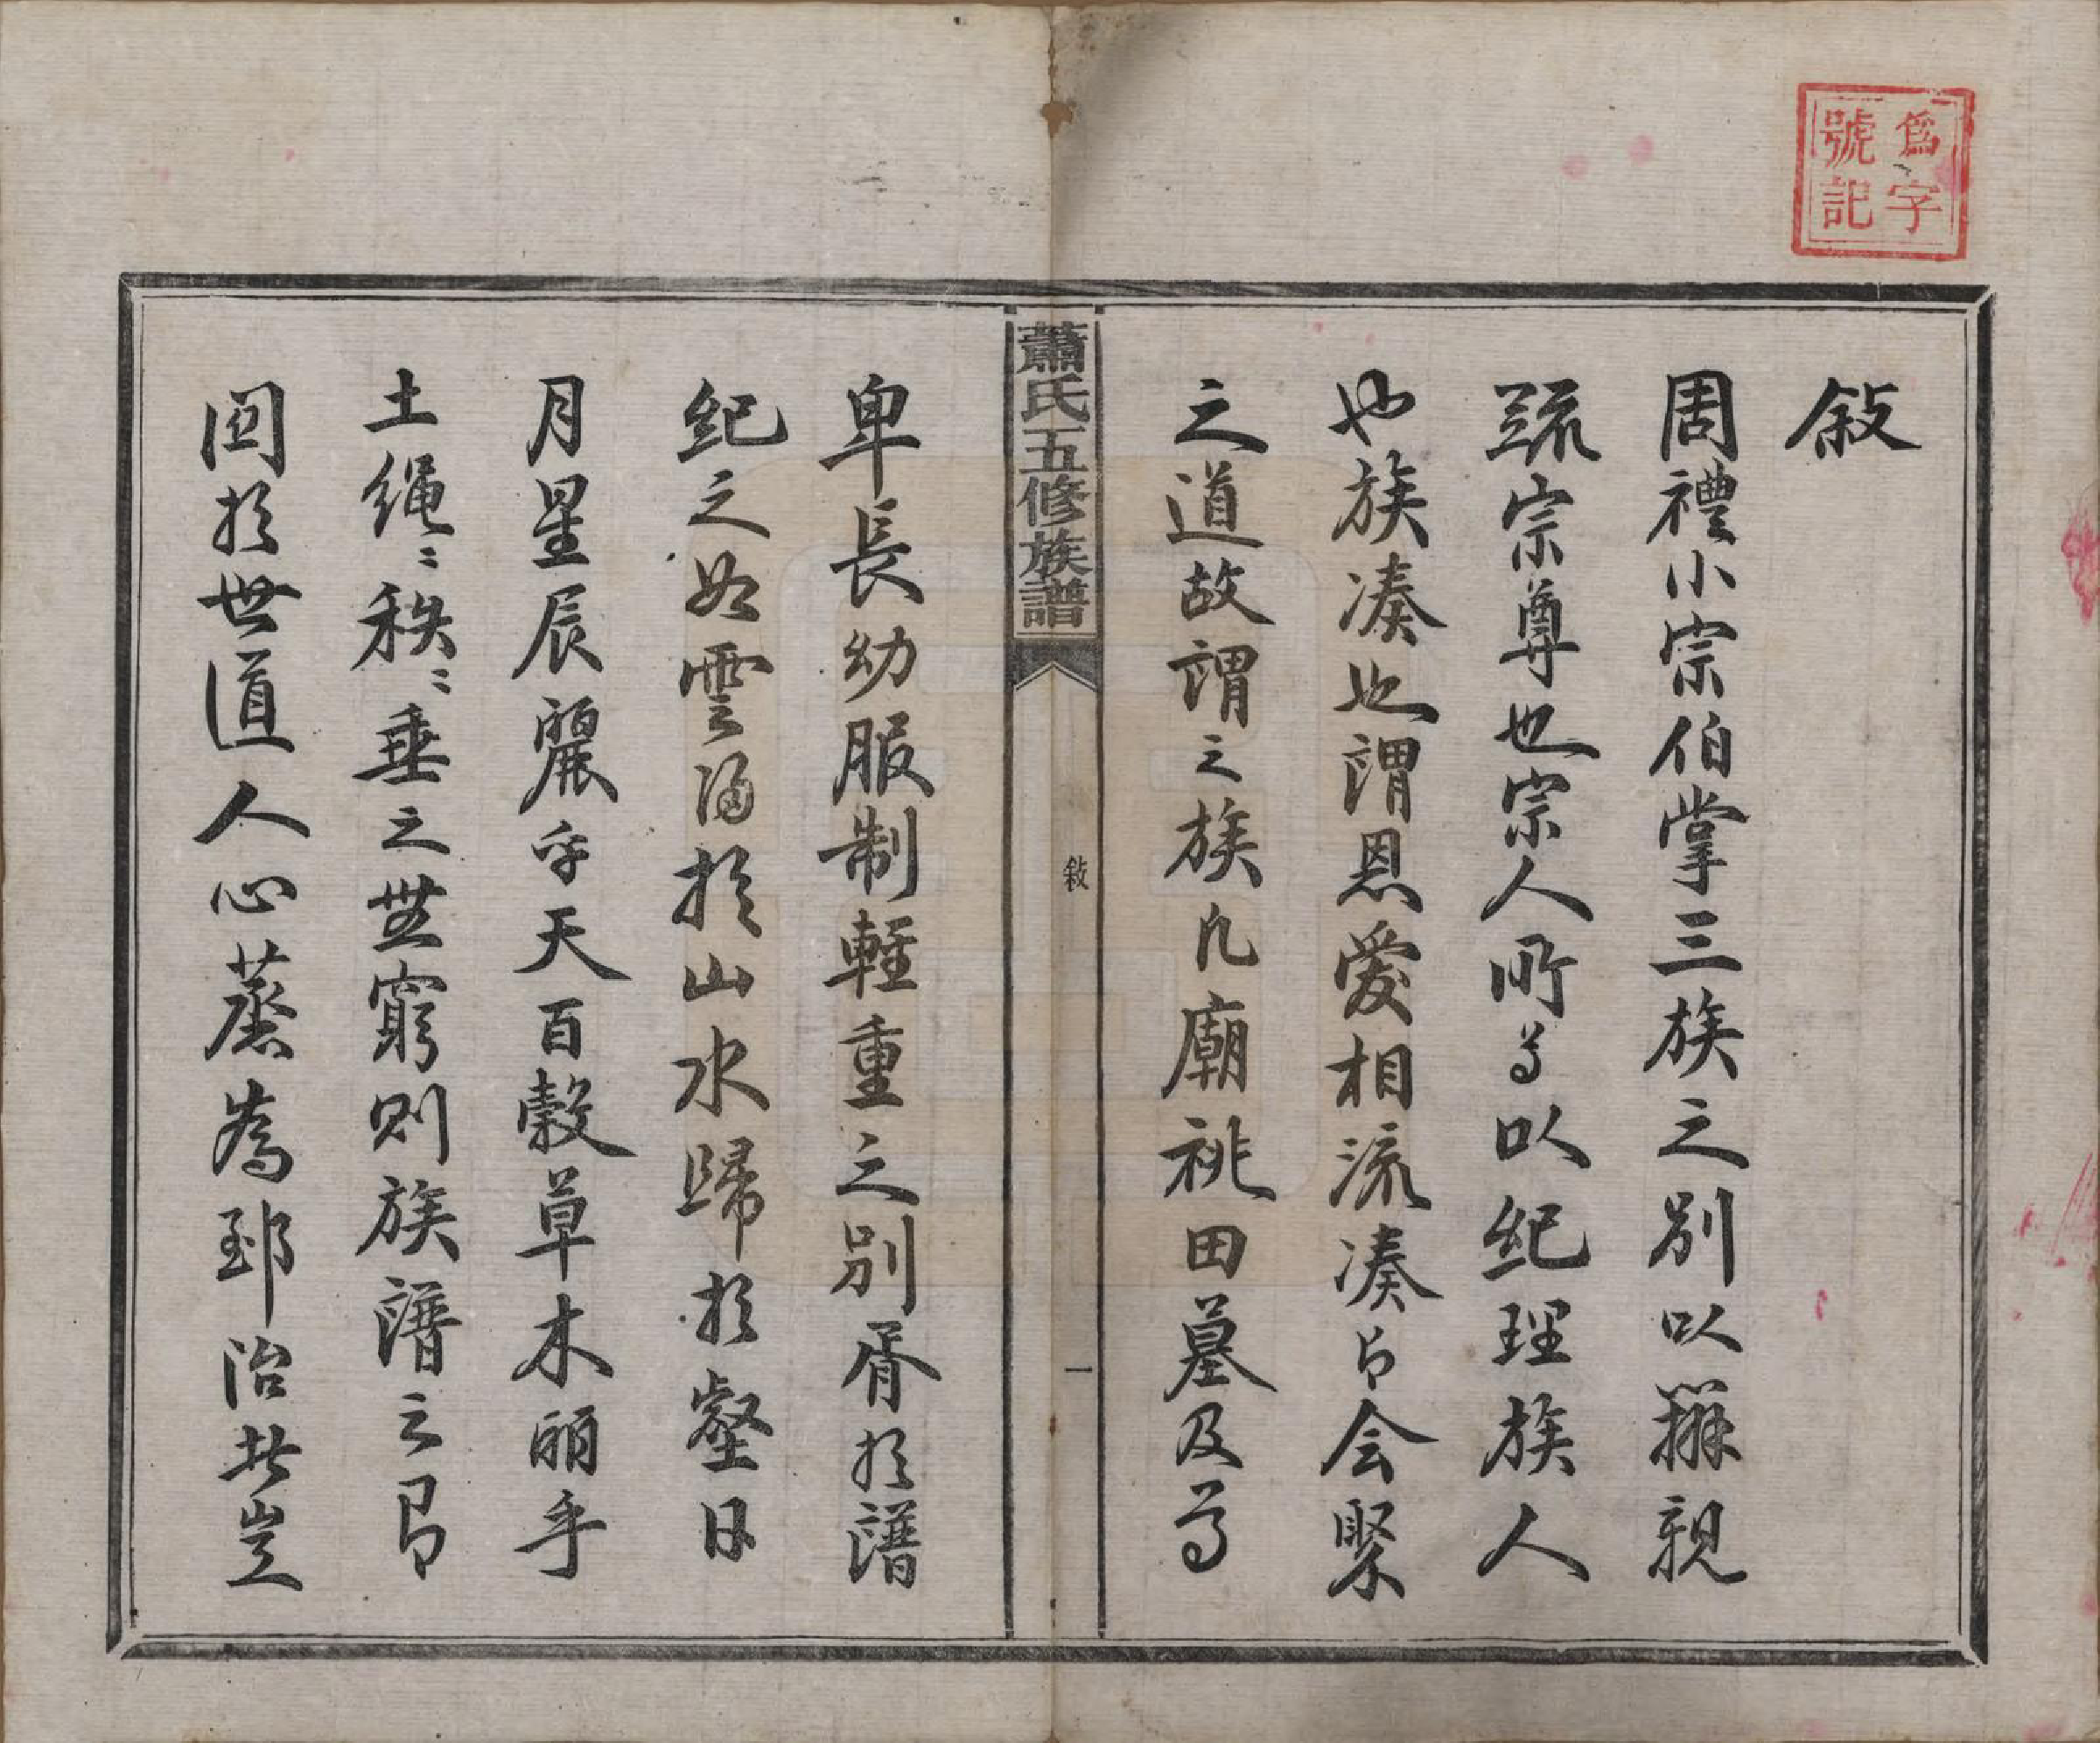 敘
周禮小宗伯掌三族之別以辨親
疏宗尊也宗人所為以紀理族人
也族湊也謂恩愛相流湊也會聚
之道故謂之族凡廟祧田墓及尊
卑長幼服制輕重之別胥於譜
紀之如雲歸於山水歸於壑日
月星辰麗乎天百穀草木麗乎
土繩〻秩〻垂之無窮則族譜之
於世道人心蒸為郅治者豈
蕭氏五修族譜
敘
一
為字
號記